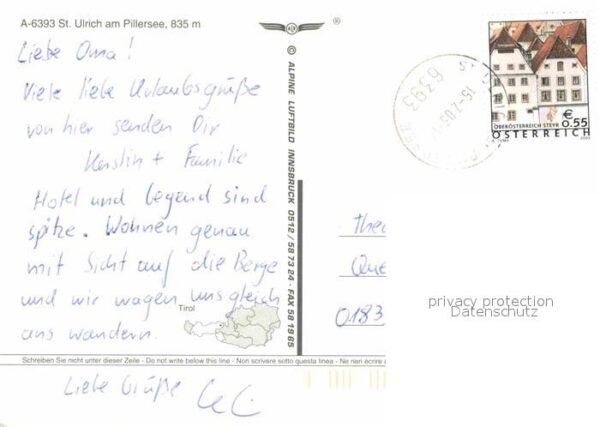 A-6393 St. Ulrich am Pillersee, 835 m
Liebe Oma!
Viele liebe Urlaubsgrüße
von hier senden Dir
Kerstin + Familie
Hotel und Gegend sind
spitze. Wohnen genau
mit Sicht auf die Berge
und wir wagen uns gleich
ans wandern.
Tirol
Schreiben Sie nicht unter dieser Zeile - Do not write below this line - Non scrivere sotto questa linea - Ne rien écrire a
Liebe Grüße
® 
© ALPINE LUFTBILD INNSBRUCK 0512 / 58 73 24 · FAX 58 1965
6393
OBERÖSTERREICH STEYR
€ 0.55
ÖSTERREICH
Thea
Que
0183
privacy protection
Datenschutz